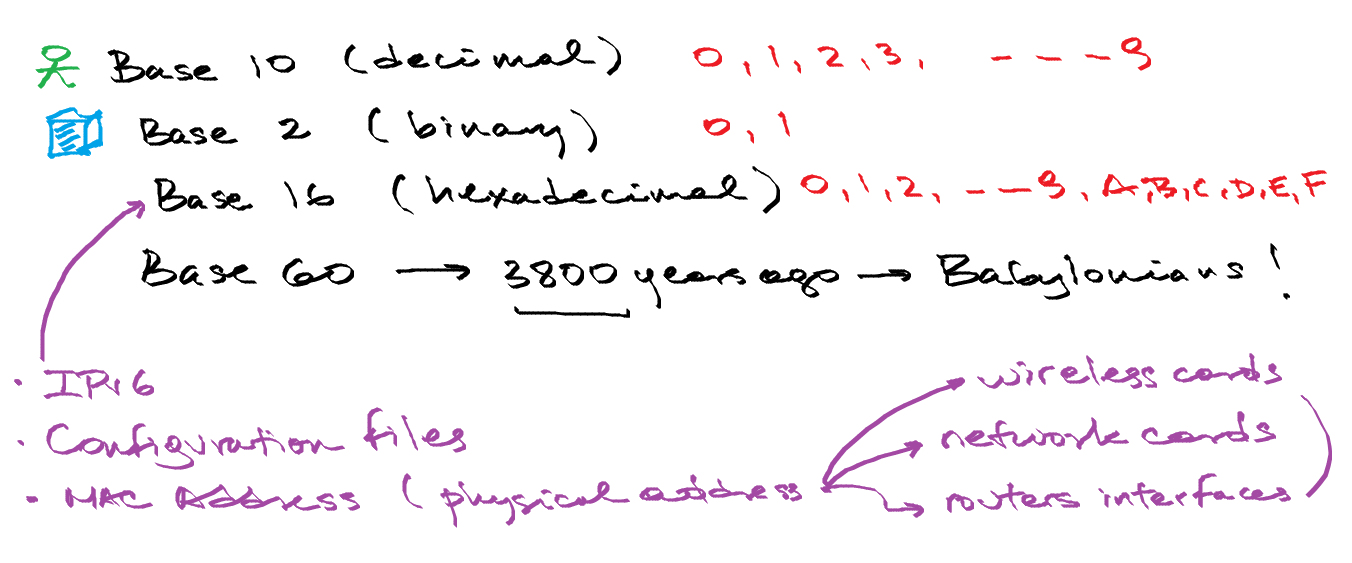 Base 10 (decimal) 0, 1, 2, 3, - - - 9
Base 2 (binary) 0, 1
Base 16 (hexadecimal) 0, 1, 2, - - - 9, A, B, C, D, E, F
Base 60 → 3800 years ago → Babylonians!
· IPv6
· Configuration files
· MAC Address (physical address
wireless cards
network cards
routers interfaces)